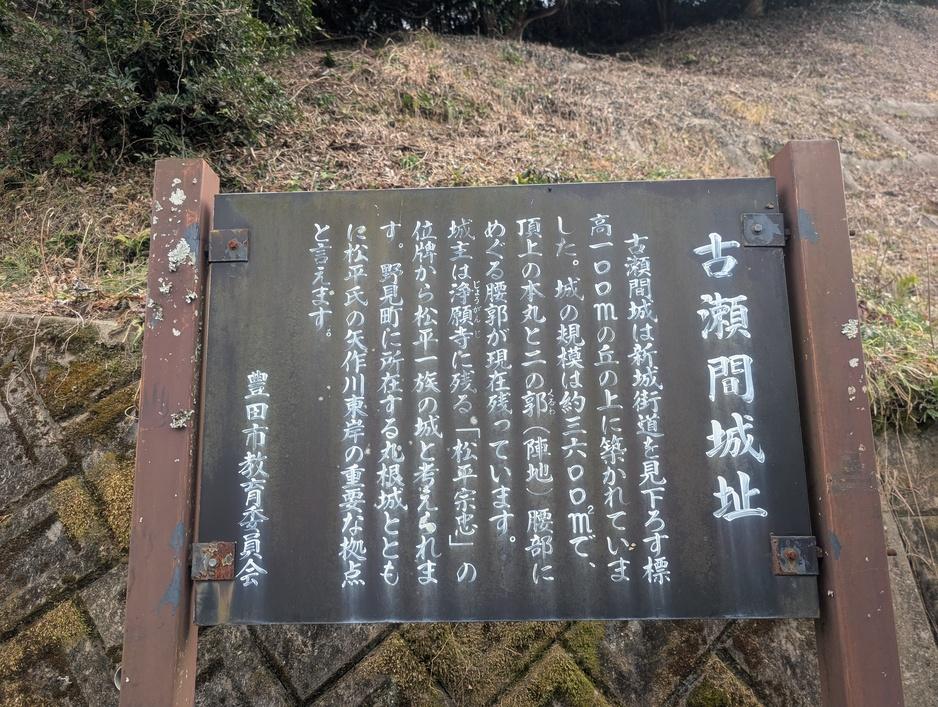 古瀬間城址
古瀬間城は新城街道を見下ろす標
高一〇〇mの丘の上に築かれていま
した。城の規模は約三六〇〇㎡で、
頂上の本丸と二の郭(陣地)腰部に
くるわ
めぐる腰郭が現在残っています。
城主は浄願寺に残る「松平宗忠」の
じょうがんじ
位牌から松平一族の城と考えられま
す。野見町に所在する丸根城ととも
に松平氏の矢作川東岸の重要な拠点
と言えます。
豊田市教育委員会